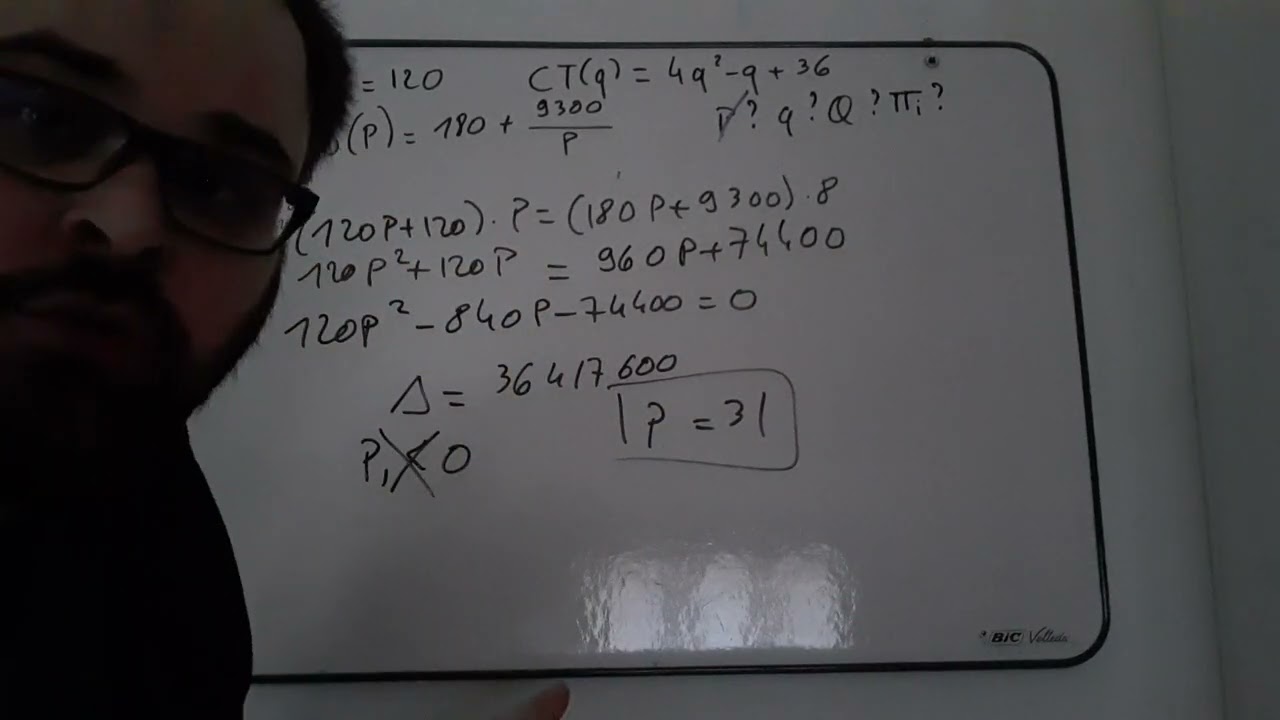 = 120 CT(q) = 4q² - q + 36
(P) = 180 + 9300/P P? q? Q? Πi?
(120P+120). P = (180P+9300).8
120P²+120P = 960P+74400
120P² - 840P - 74400 = 0
Δ = 36417600
P = 31
P₁ < 0
BIC Velleda